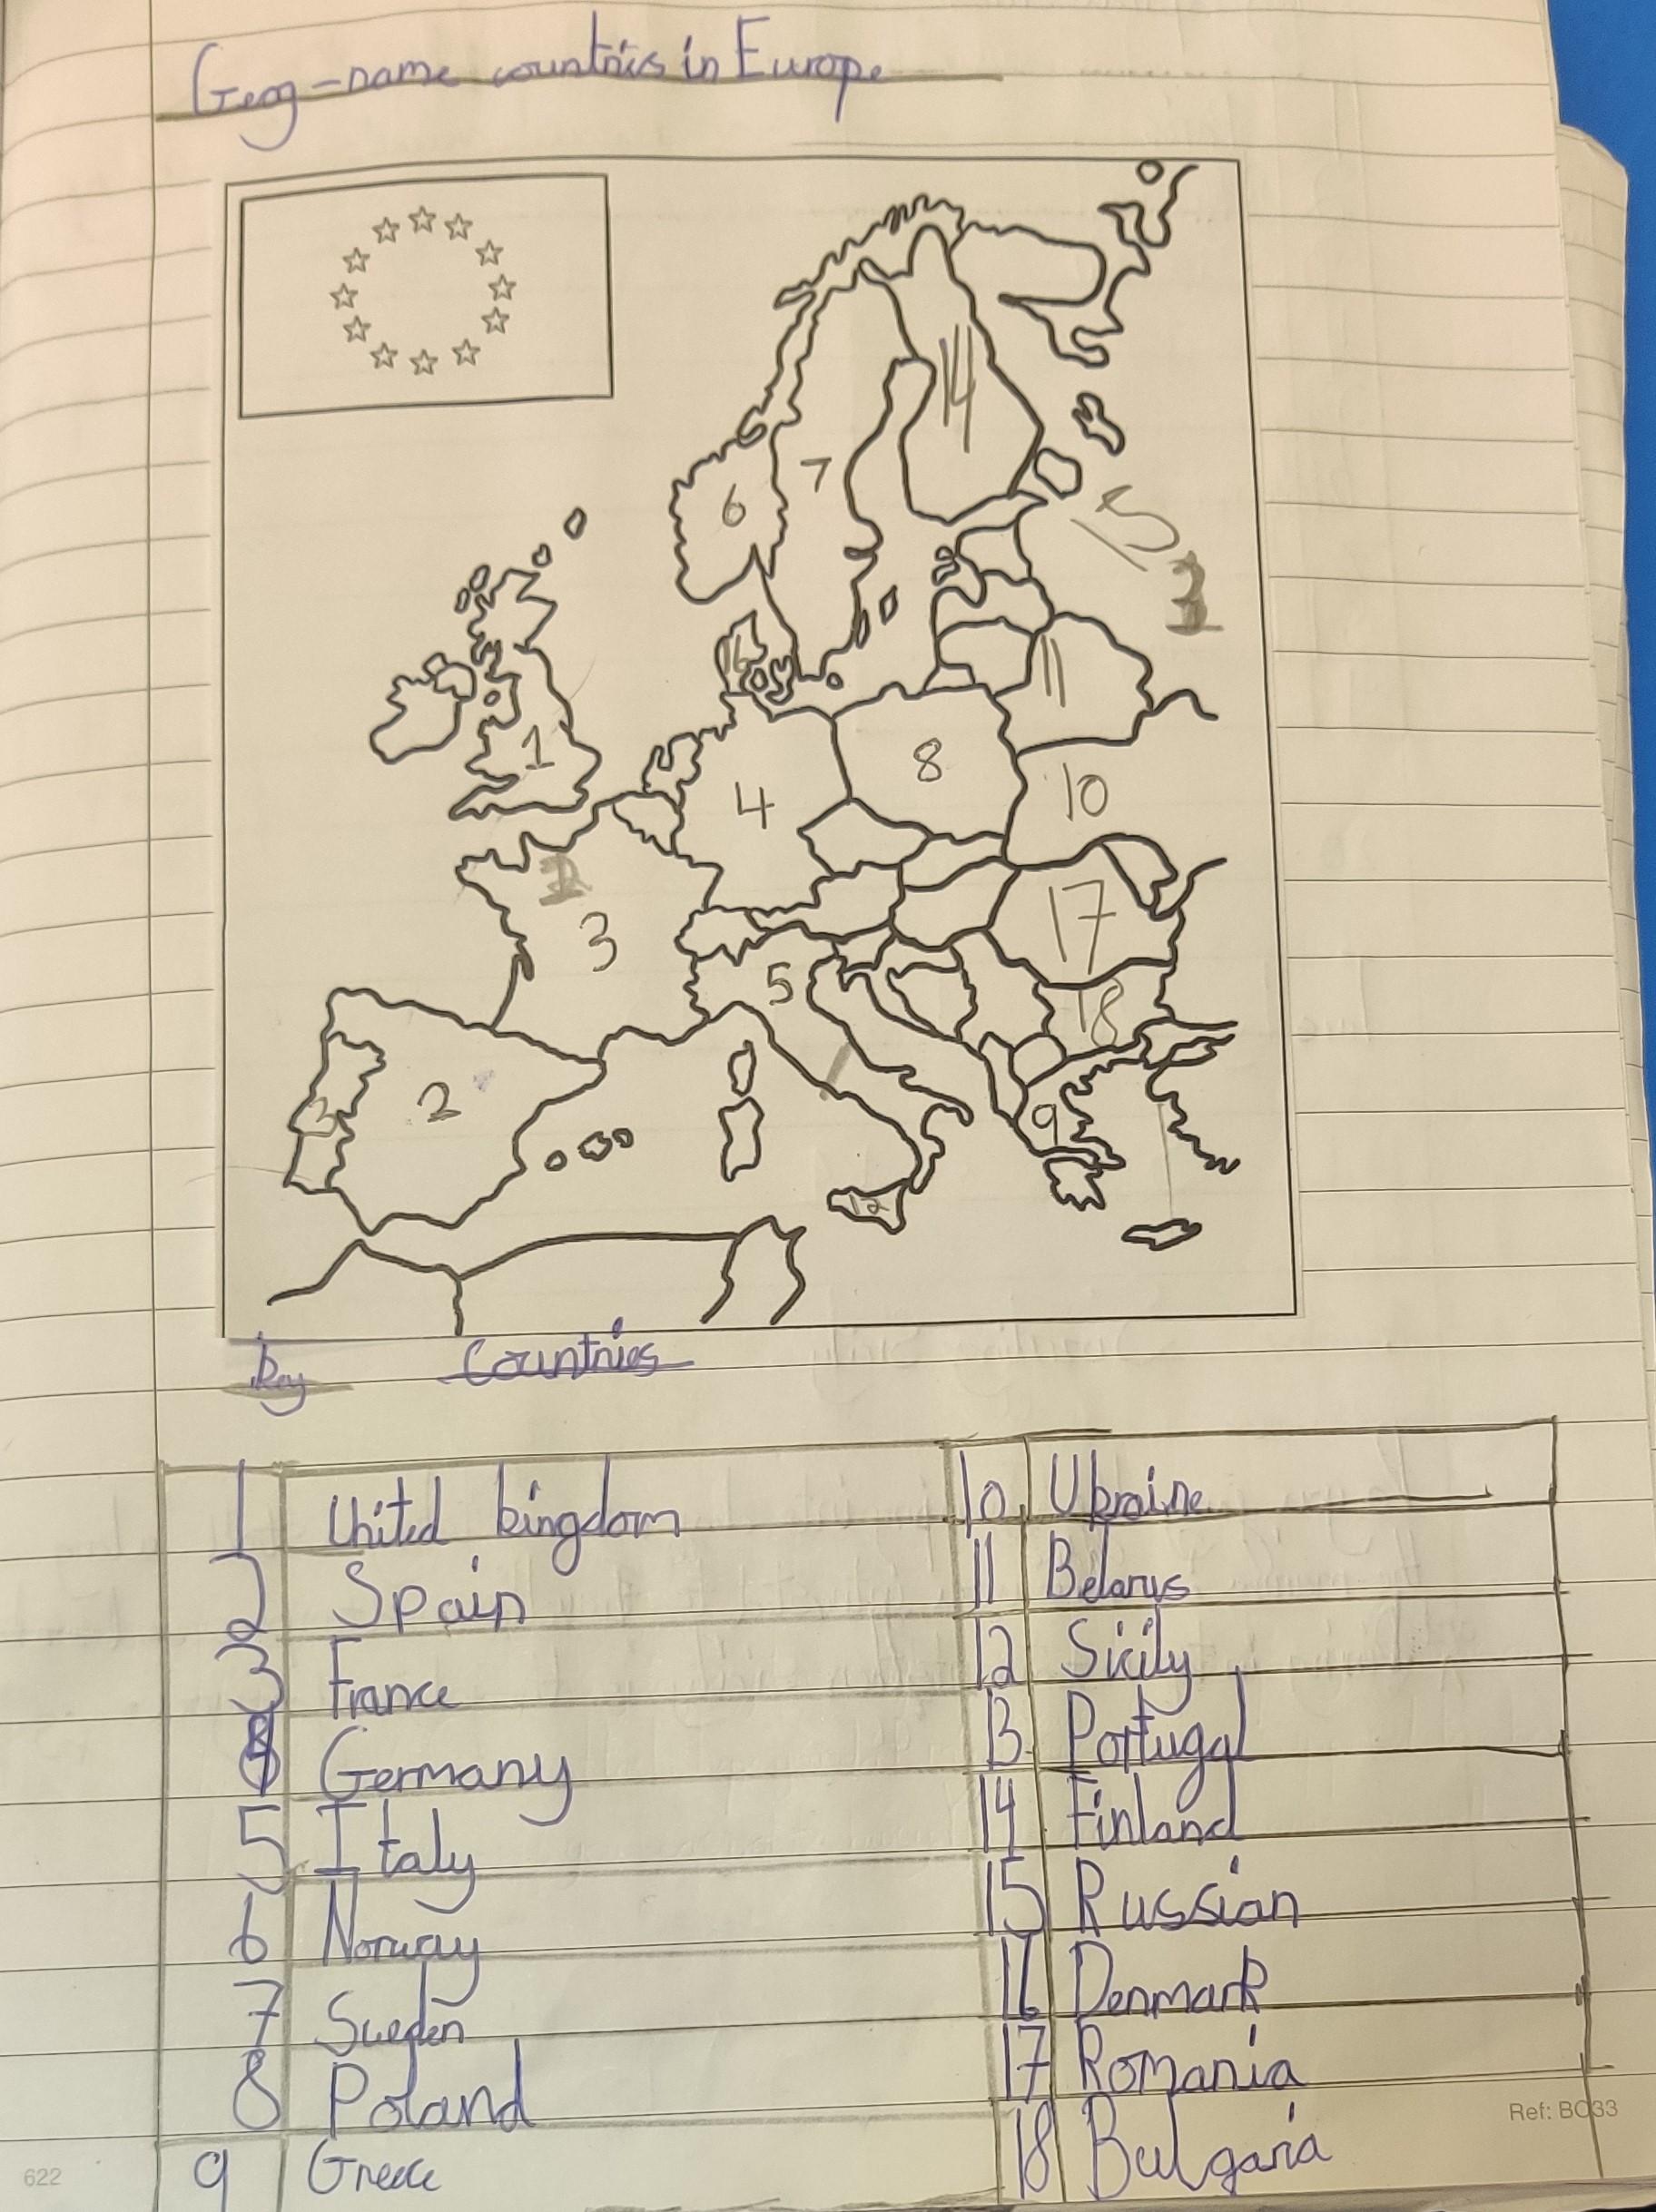 Geog-name countries in Europe
14
7
6
15
16
11
1
8
4
10
3
17
5
18
13
2
9
12
key countries
1 United kingdom
2 Spain
3 France
4 Germany
5 Italy
6 Norway
7 Sweden
8 Poland
9 Greece
10 Ukraine
11 Belarus
12 Sicily
13 Portugal
14 Finland
15 Russian
16 Denmark
17 Romania
18 Bulgaria
622
Ref: BC33